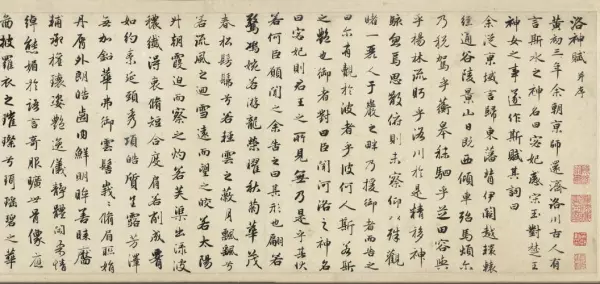 洛神賦 并序
黄初三年余朝京師還濟洛川古人有
言斯水之神名曰宓妃感宋玉對楚王
神女之事遂作斯賦其詞曰
余從京域言歸東藩背伊闕越轘轅
經通谷陵景山日既西傾車殆馬煩尔
乃稅駕乎蘅皋秣駟乎芝田容與
乎楊林流眄乎洛川於是精移神
駭忽焉思散俯則未察仰以殊觀
睹一麗人于巖之畔乃援御者而告之
曰尔有覿於彼者乎彼何人斯若斯
之艷也御者對曰臣聞河洛之神名
曰宓妃則君王之所見無乃是乎其狀
若何臣願聞之余告之曰其形也翩若
驚鴻婉若游龍榮曜秋菊華茂
春松髣髴兮若輕雲之蔽月飄颻兮
若流風之迴雪遠而望之皎若太陽
升朝霞迫而察之灼若芙蕖出淥波
穠纖得衷脩短合度肩若削成腰
如約素延頸秀項皓質呈露芳澤
無加鉛華弗御雲髻峩峩脩眉聯娟
丹脣外朗皓齒内鮮明眸善睞靨
輔承權瓌姿艷逸儀靜體閑柔情
綽態媚於語言奇服曠世骨像應
圖披羅衣之璀璨兮珥瑤碧之華